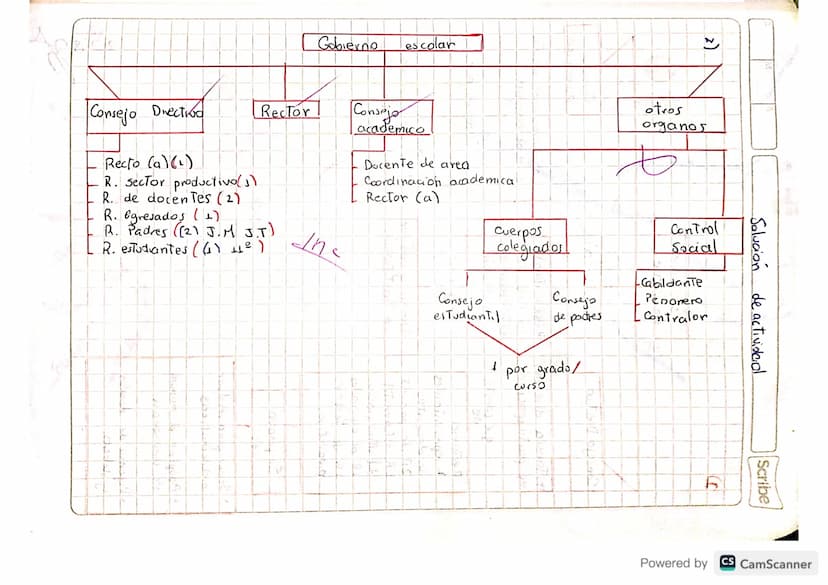 Gobierno escolar
Consejo Directivo
Rector
Consejo
academico
otros
organos
Recto (a)(1)
R. sector productivo(1)
R. de docentes (2)
R. Egresados (1)
R. Padres ((2) J.M J.T)
R. estudiantes ((1) 11º)
Docente de area
Coordinacion academica
Rector (a)
Cuerpos
colegiados
Control
Social
Consejo
estudiantil
Consejo
de padres
Cabildante
Penonero
Contralor
1 por grado/
curso
Solución de actividad
Scribe
Powered by CS CamScanner